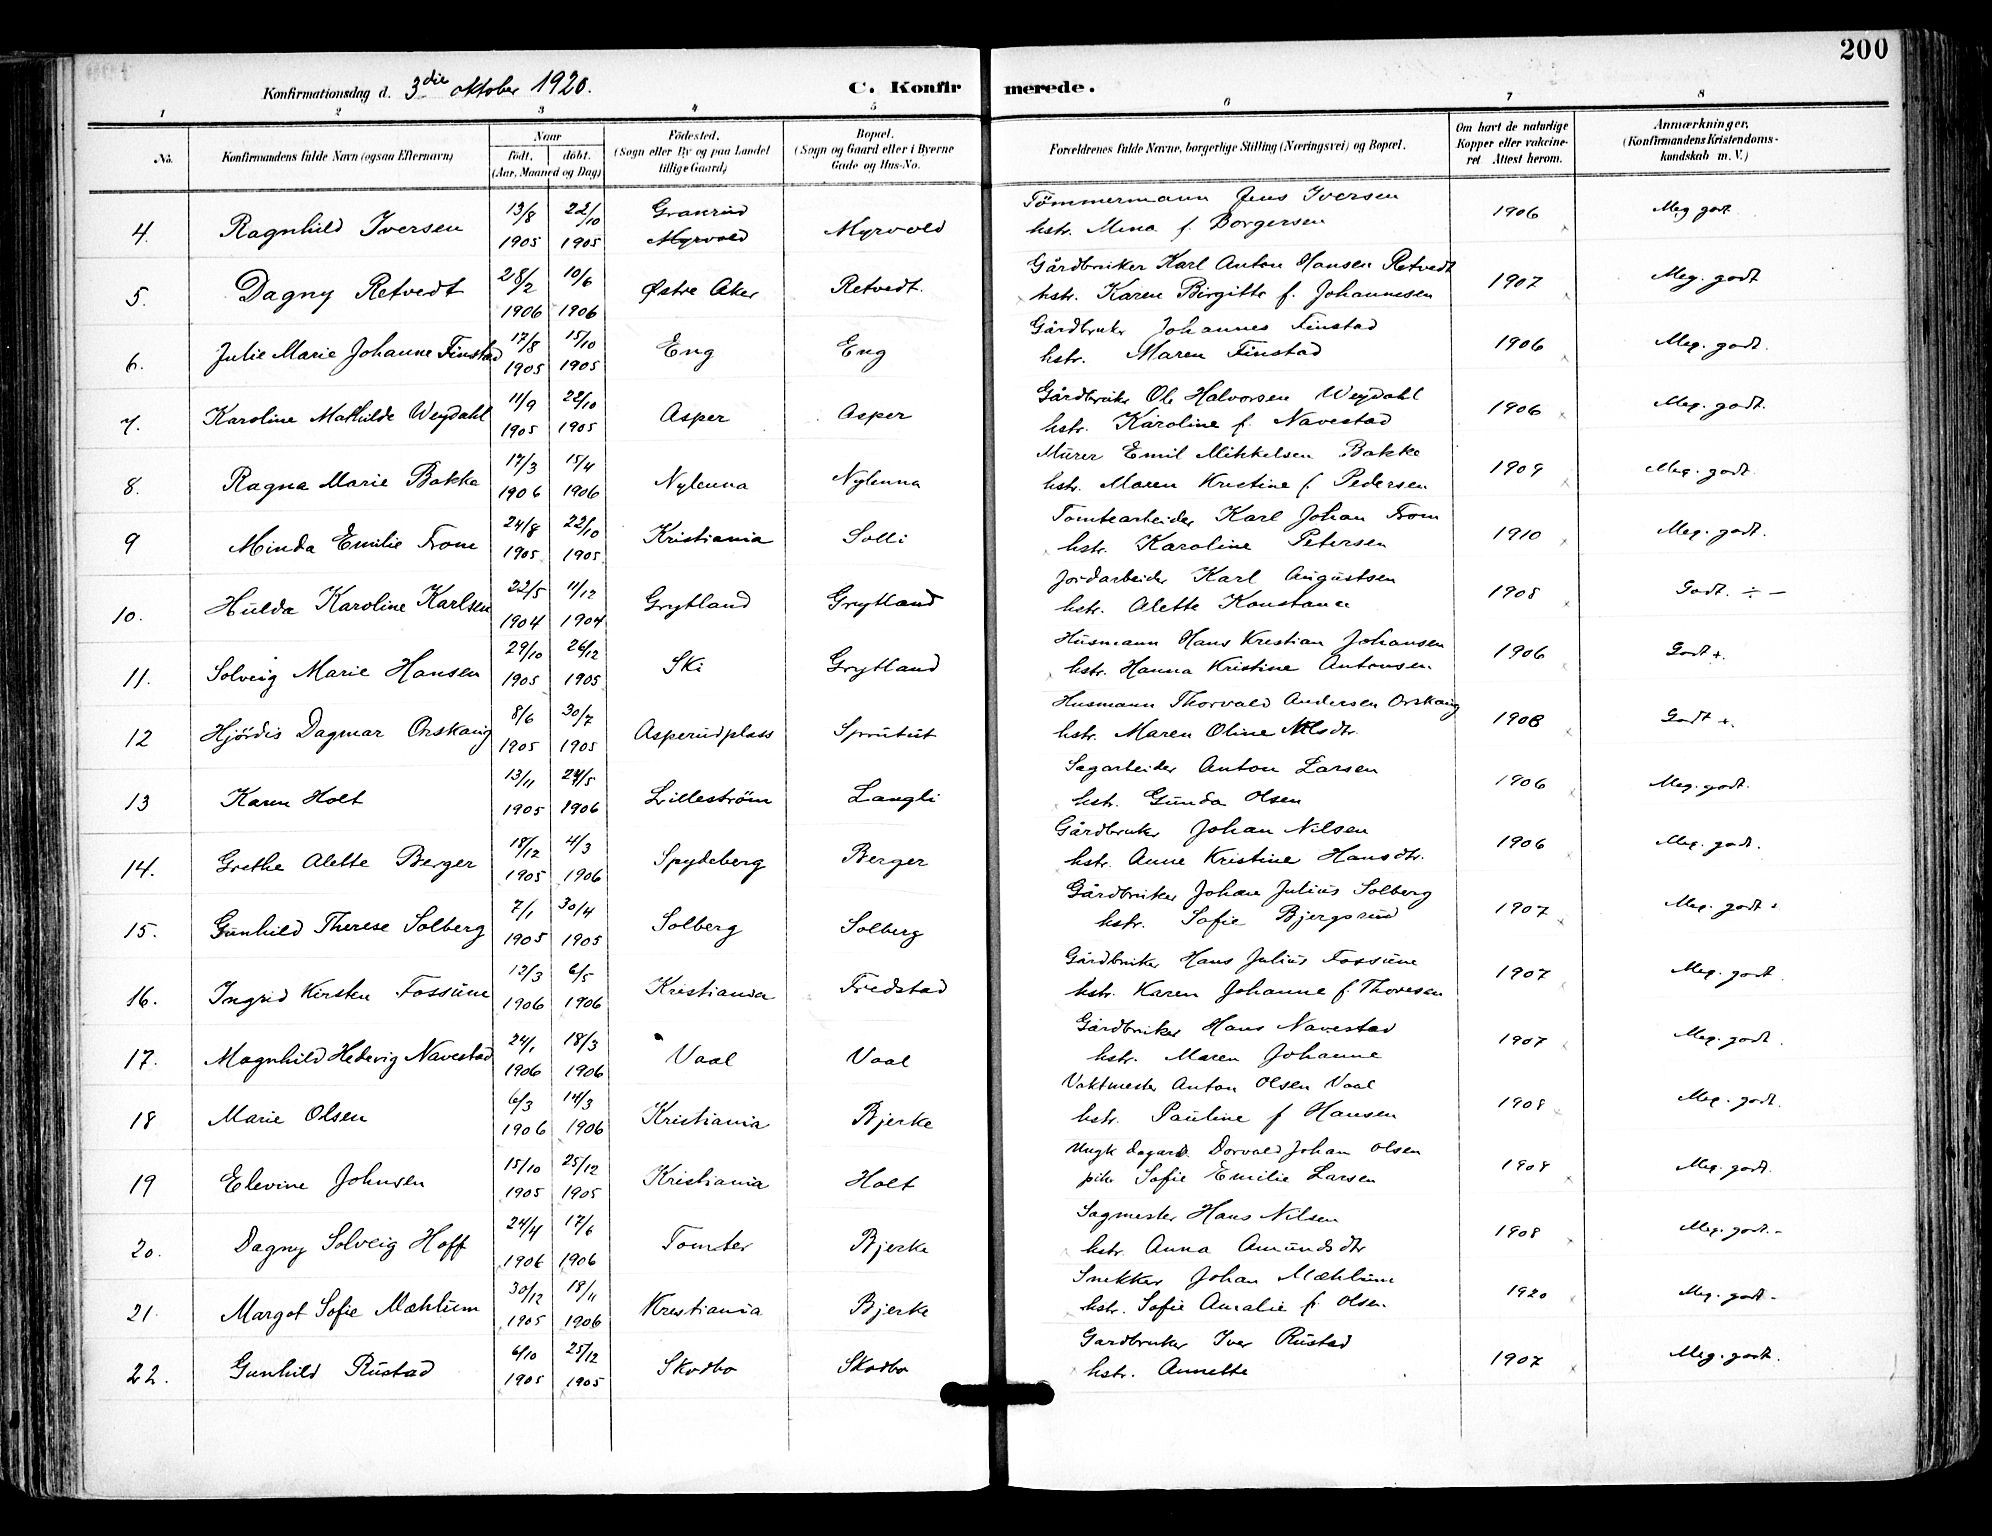 200
Konfirmationsdag d. 3die oktober 1920. C. Konfirmerede.
1 2 3 4 5 6 7 8
No. Konfirmandens fulde Navn (ogsaa Efternavn) Naar født, døbt. (Aar, Maaned og Dag) Fødested. (Sogn eller By og paa Landet tillige Gaard) Bopæl. (Sogn og Gaard eller i Byerne Gade og Hus-No. Forældrenes fulde Navne, borgerlige Stilling (Næringsvei) og Bopæl. Om havt de naturlige Kopper eller vakcineret Attest herom. Anmærkninger, (Konfirmandens Kristendomskundskab m. V.)
4. Ragnhild Iversen 13/8 1905 22/10 1905 Granrud Myrvold Myrvold Tømmermann Jens Iversen 1906 Meg godt
hstr. Mina f. Borgersen
5. Dagny Retvedt 28/2 1906 10/6 1906 Østre Aker Retvedt. Gårdbruker Karl Anton Hansen Retvedt 1907 Meg. godt
hstr. Karen Birgitte f. Johannesen
6. Julie Marie Johanne Finstad 17/8 1905 15/10 1905 Eng Eng Gårdbruker Johannes Finstad 1906 Meg. godt.
hstr. Maren Finstad
7. Karoline Mathilde Weydahl 11/9 1905 22/10 1905 Asper Asper Gårdbruker Ole Halvorsen Weydahl 1906 Meg. godt.
hstr. Karoline f. Navestad
8. Ragna Marie Bakke 17/3 1906 15/4 1906 Nylenna Nylenna Murer Emil Mikkelsen Bakke 1909 Meg. godt.
hstr. Maren Kristine f. Pedersen
9 Minda Emilie From 24/8 1905 22/10 1905 Kristiania Solli Tomtearbeider Karl Johan From 1910 Meg. godt.
hstr. Karoline Petersen
10. Hulda Karoline Karlsen 22/5 1904 11/12 1904 Grytland Grytland Jordarbeider Karl Augustsen 1908 Godt. ÷ -
hstr. Alette Konstance
11. Solveig Marie Hansen 29/10 1905 26/12 1905 Ski Grytland Husmann Hans Kristian Johansen 1906 Godt +.
hstr. Hanna Kristine Antonsen
12 Hjørdis Dagmar Orskaug 8/6 1905 30/7 1905 Asperudplass Sprutut Husmann Thorvald Andersen Orskaug 1908 Godt +.
hstr. Maren Oline Nilsdtr.
13 Karen Holt 13/11 1905 24/5 1906 Lilleström Langli Sagarbeider Anton Larsen 1906 Meg. godt.
hstr. Gunda Olsen
14. Grethe Alette Berger 18/12 1905 4/3 1906 Spydeberg Berger Gårdbruker Johan Nilsen 1906 Meg. godt.
hstr. Anne Kristine Hansdtr.
15. Gunhild Therese Solberg 7/1 1905 30/4 1905 Solberg Solberg Gårdbruker Johan Julius Solberg 1907 Meg. godt
hstr. Sofie Bjergsrud
16. Ingrid Kirsten Fossune 12/3 1906 6/5 1906 Kristiania Fredstad Gårdbruker Hans Julius Fossune 1907 Meg. godt.
hstr. Karen Johanne f. Thoresen
17. Magnhild Hedevig Navestad 24/1 1906 18/3 1906 Vaal Vaal Gårdbruker Hans Navestad 1907 Meg. godt.
hstr. Maren Johanne
18 Marie Olsen 6/3 1906 14/3 1906 Kristiania Bjerke Vaktmester Anton Olsen Vaal 1908 Meg. godt.
hstr. Pauline f Hansen
19 Elevine Johnsen 15/10 1905 25/12 1905 Kristiania Holt Ungk dagarb. Dorvald Johan Olsen 1908 Meg. godt.
pike Sofie Emilie Larsen
20. Dagny Solveig Hoff 24/4 1906 17/6 1906 Tomter Bjerke Sagmester Hans Nilsen 1908 Meg. godt.-
hstr. Anna Amundsdtr
21. Margot Sofie Mæhlum 30/12 1905 18/11 1906 Krestiania Bjerke Snekker Johan Mæhlum 1920 Meg. godt -
hstr. Sofie Amalie f. Olsen
22. Gunhild Rustad 6/10 1905 25/12 1905 Skodbo Skodbo Gardbruker Iver Rustad 1907 Meg. godt.
hstr. Annette